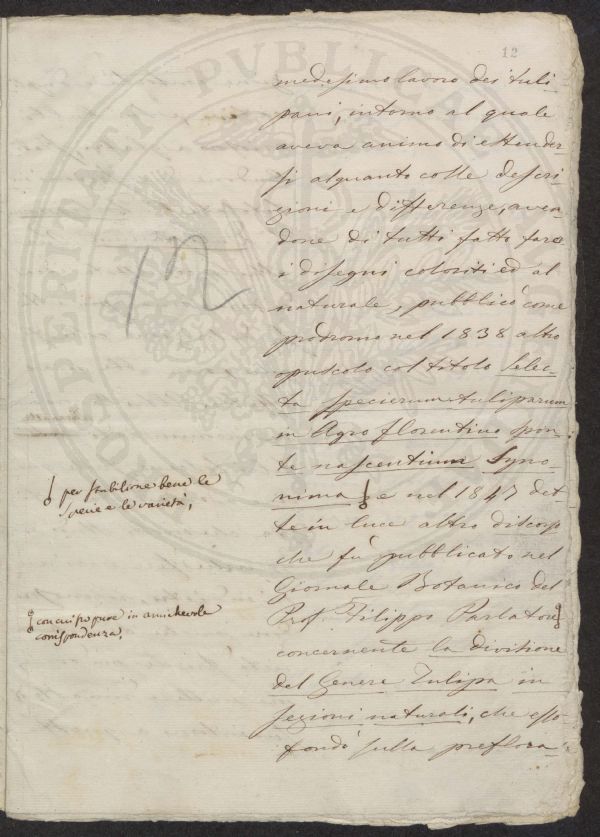 12
medesimo lavoro dei tuli-
pani, intorno al quale
aveva animo di estender-
si alquanto colle descri-
zioni e differenze, aven-
done di tutti fatto fare
i disegni coloriti ed al
naturale, pubblicò come
prodromo nel 1838 altro
opuscolo col titolo Selec-
ta specierum tuliparum
in Agro florentino spon-
te nascentium Syno-
nima e nel 1847 det-
te in luce altro discorso
che fù pubblicato nel
Giornale Botanico del
Prof. Filippo Parlatore
concernente la divisione
del Genere Tulipa in
sezioni naturali, che esso
fondò sulla preflora-
12
per stabilirne bene le
specie e le varietà,
con cui fu pure in amichevole
corrispondenza,
PROSPERITATI PVBLICAE